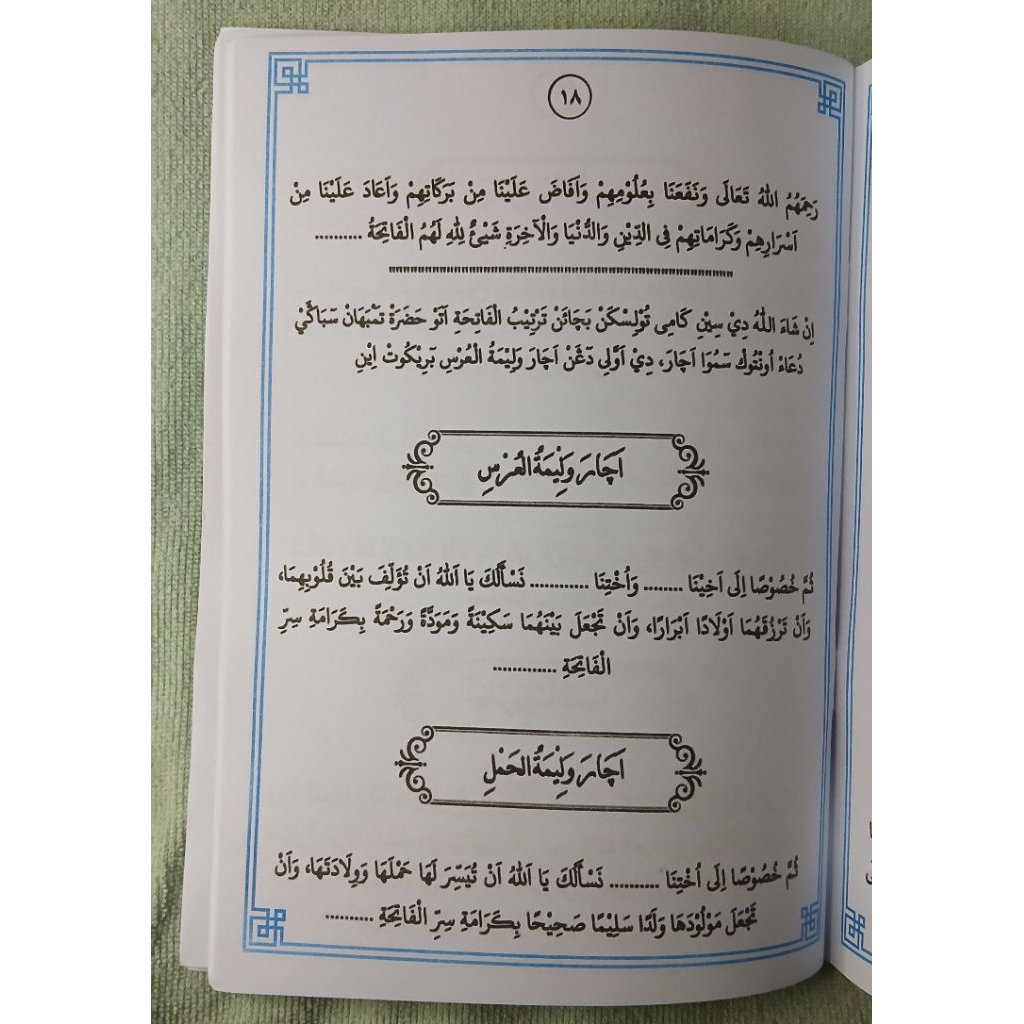 ١٨
رَحِمَهُمُ اللهُ تَعَالَى وَنَفَعَنَا بِعُلُوْمِهِمْ وَاَفَاضَ عَلَيْنَا مِنْ بَرَكَاتِهِمْ وَاَعَادَ عَلَيْنَا مِنْ
اَسْرَارِهِمْ وَكَرَامَاتِهِمْ فِى الدِّيْنِ وَالدُّنْيَا وَالْآخِرَةِ شَيْئٌ لِلّٰهِ لَهُمُ الْفَاتِحَةُ ..........
اِنْ شَاءَ اللّٰهُ دِيْ سِيْنِ كَامِى تُوْلِسْكَنْ بَچَائَنْ تَرْتِيْبُ الْفَاتِحَةِ اَتَوْ حَضْرَةْ تَمْبَهَانْ سَبَاݢَيْ
دُعَاءْ اُونْتُوْكْ سَمُوَا اَچَارَ، دِيْ اَوَّلِى دَڠَنْ اَچَارَ وَلِيْمَةُ الْعُرْسِ بَرِيْكُوتْ اِيْنِ
اَچَارَ وَلِيْمَةُ الْعُرْسِ
ثُمَّ خُصُوْصًا اِلَى اَخِيْنَا ........ وَاُخْتِنَا ............ نَسْأَلُكَ يَا اَللهُ اَنْ تُؤَلِّفَ بَيْنَ قُلُوْبِهِمَا،
وَاَنْ تَرْزُقَهُمَا اَوْلَادًا اَبْرَارًا، وَاَنْ تَجْعَلَ بَيْنَهُمَا سَكِيْنَةً وَمَوَدَّةً وَرَحْمَةً بِكَرَامَةِ سِرِّ
الْفَاتِحَةِ .............
اَچَارَ وَلِيْمَةُ الْحَمْلِ
ثُمَّ خُصُوْصًا اِلَى اُخْتِنَا .......... نَسْأَلُكَ يَا اَللهُ اَنْ تُيَسِّرَ لَهَا حَمْلَهَا وَوِلَادَتَهَا، وَاَنْ
تَجْعَلَ مَوْلُوْدَهَا وَلَدًا سَلِيْمًا صَحِيْحًا بِكَرَامَةِ سِرِّ الْفَاتِحَةِ ..........